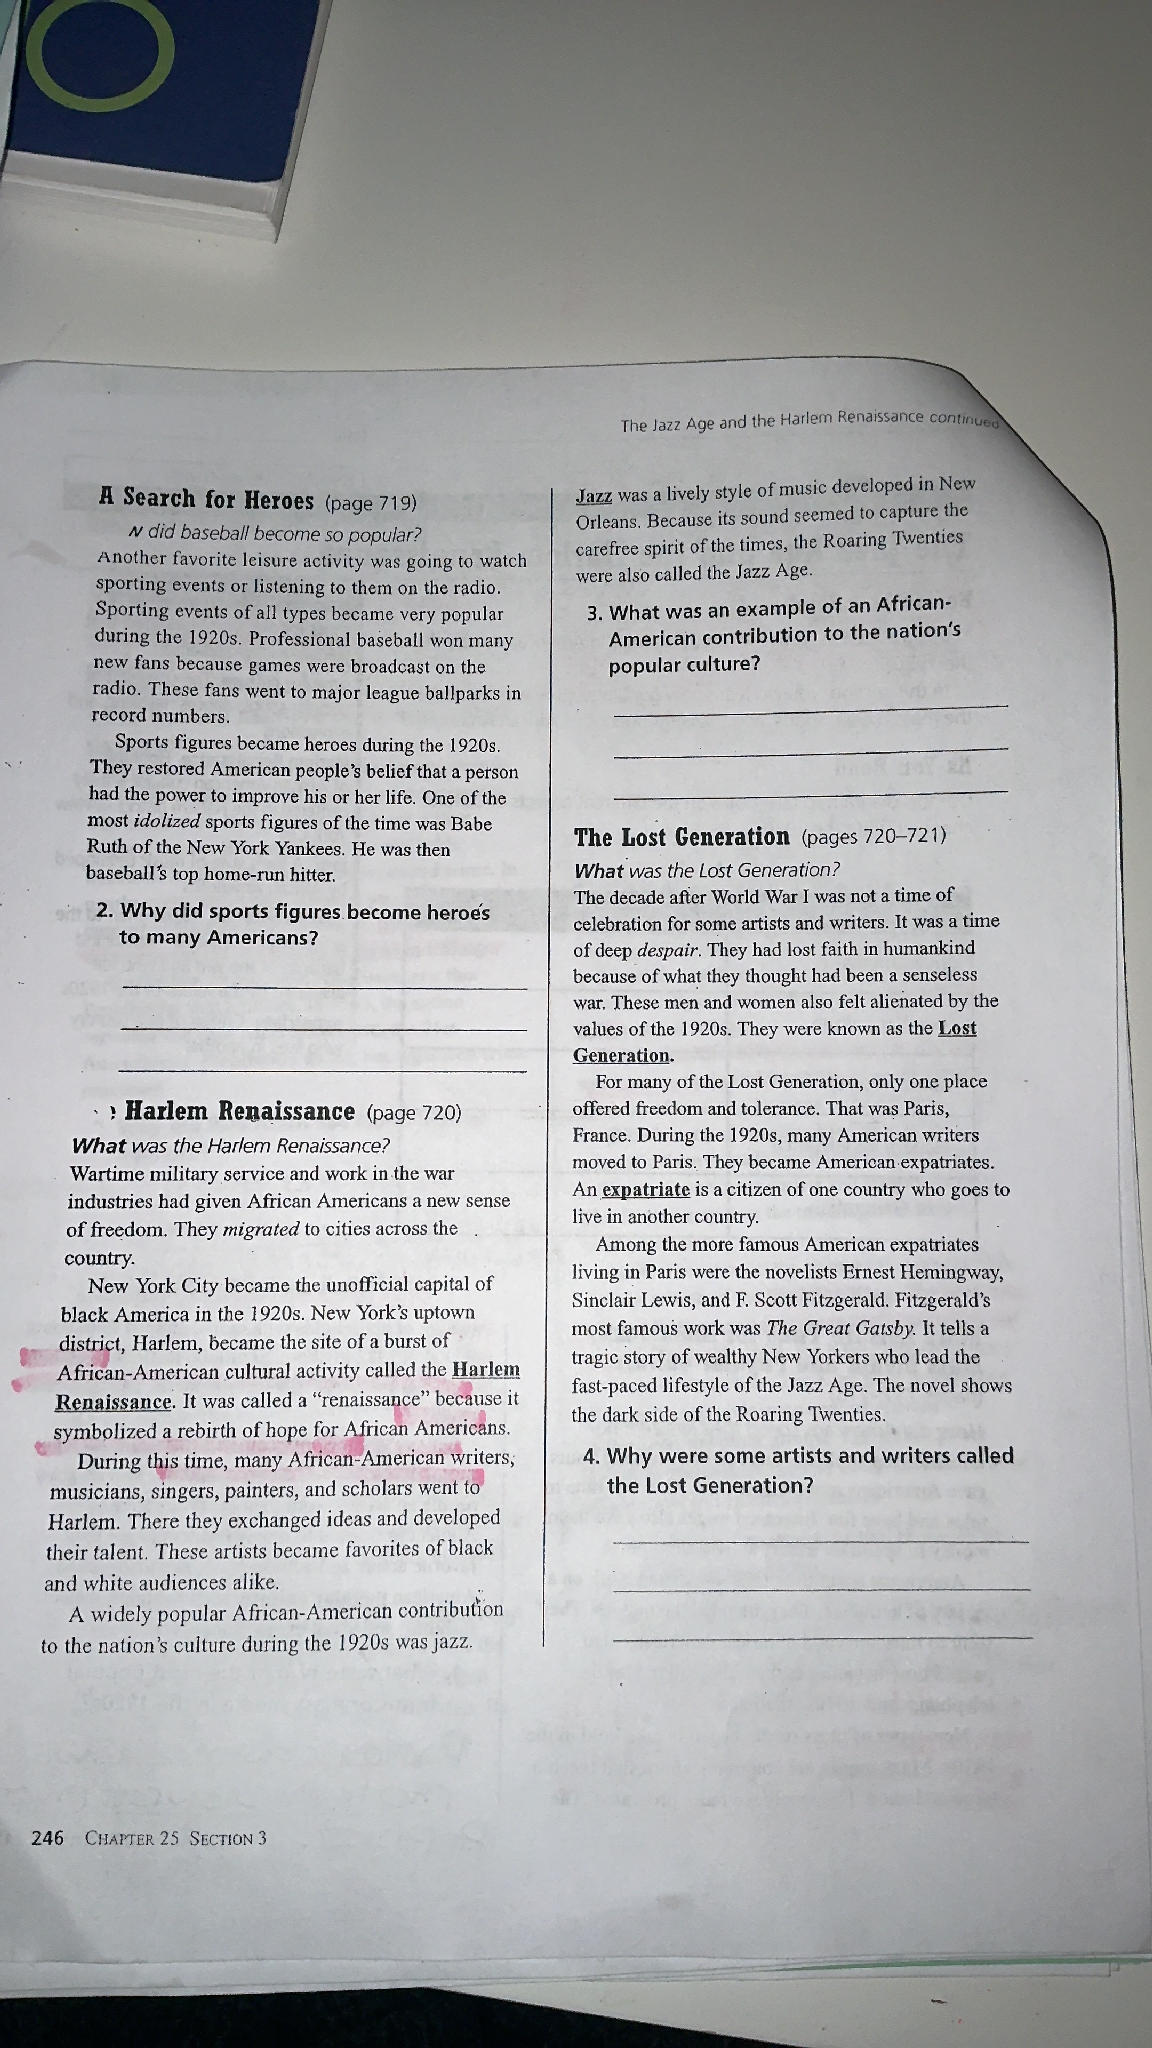 The Jazz Age and the Harlem Renaissance continued
A Search for Heroes (page 719)
did baseball become so popular?
Another favorite leisure activity was going to watch
sporting events or listening to them on the radio.
Sporting events of all types became very popular
during the 1920s. Professional baseball won many
new fans because games were broadcast on the
radio. These fans went to major league ballparks in
record numbers.
Sports figures became heroes during the 1920s.
They restored American people's belief that a person
had the power to improve his or her life. One of the
most idolized sports figures of the time was Babe
Ruth of the New York Yankees. He was then
baseball's top home-run hitter.
2. Why did sports figures become heroes
to many Americans?
Harlem Renaissance (page 720)
What was the Harlem Renaissance?
Wartime military service and work in the war
industries had given African Americans a new sense
of freedom. They migrated to cities across the
country.
New York City became the unofficial capital of
black America in the 1920s. New York's uptown
district, Harlem, became the site of a burst of
African-American cultural activity called the Harlem
Renaissance. It was called a "renaissance" because it
symbolized a rebirth of hope for African Americans.
During this time, many African-American writers,
musicians, singers, painters, and scholars went to
Harlem. There they exchanged ideas and developed
their talent. These artists became favorites of black
and white audiences alike.
A widely popular African-American contribution
to the nation's culture during the 1920s was jazz.
Jazz was a lively style of music developed in New
Orleans. Because its sound seemed to capture the
carefree spirit of the times, the Roaring Twenties
were also called the Jazz Age.
3. What was an example of an African-
American contribution to the nation's
popular culture?
The Lost Generation (pages 720–721)
What was the Lost Generation?
The decade after World War I was not a time of
celebration for some artists and writers. It was a time
of deep despair. They had lost faith in humankind
because of what they thought had been a senseless
war. These men and women also felt alienated by the
values of the 1920s. They were known as the Lost
Generation.
For many of the Lost Generation, only one place
offered freedom and tolerance. That was Paris,
France. During the 1920s, many American writers
moved to Paris. They became American expatriates.
An expatriate is a citizen of one country who goes to
live in another country.
Among the more famous American expatriates
living in Paris were the novelists Ernest Hemingway,
Sinclair Lewis, and F. Scott Fitzgerald. Fitzgerald's
most famous work was The Great Gatsby. It tells a
tragic story of wealthy New Yorkers who lead the
fast-paced lifestyle of the Jazz Age. The novel shows
the dark side of the Roaring Twenties.
4. Why were some artists and writers called
the Lost Generation?
246 CHAPTER 25 SECTION 3